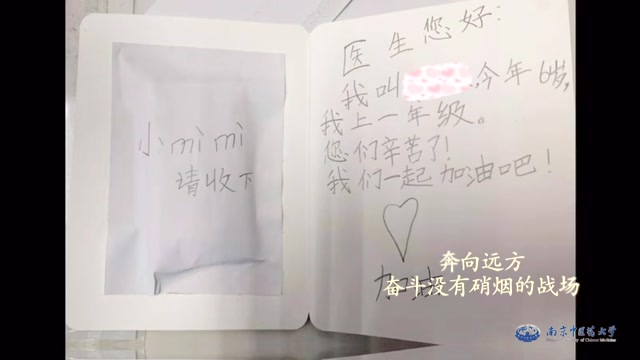 小mì mì
请收下
医生您好：
我叫,今年6岁,
我上一年级。
您们辛苦了!
我们一起加油吧!
加油
奔向远方
奋斗没有硝烟的战场
南京中医药大学
University of Chinese Medicine